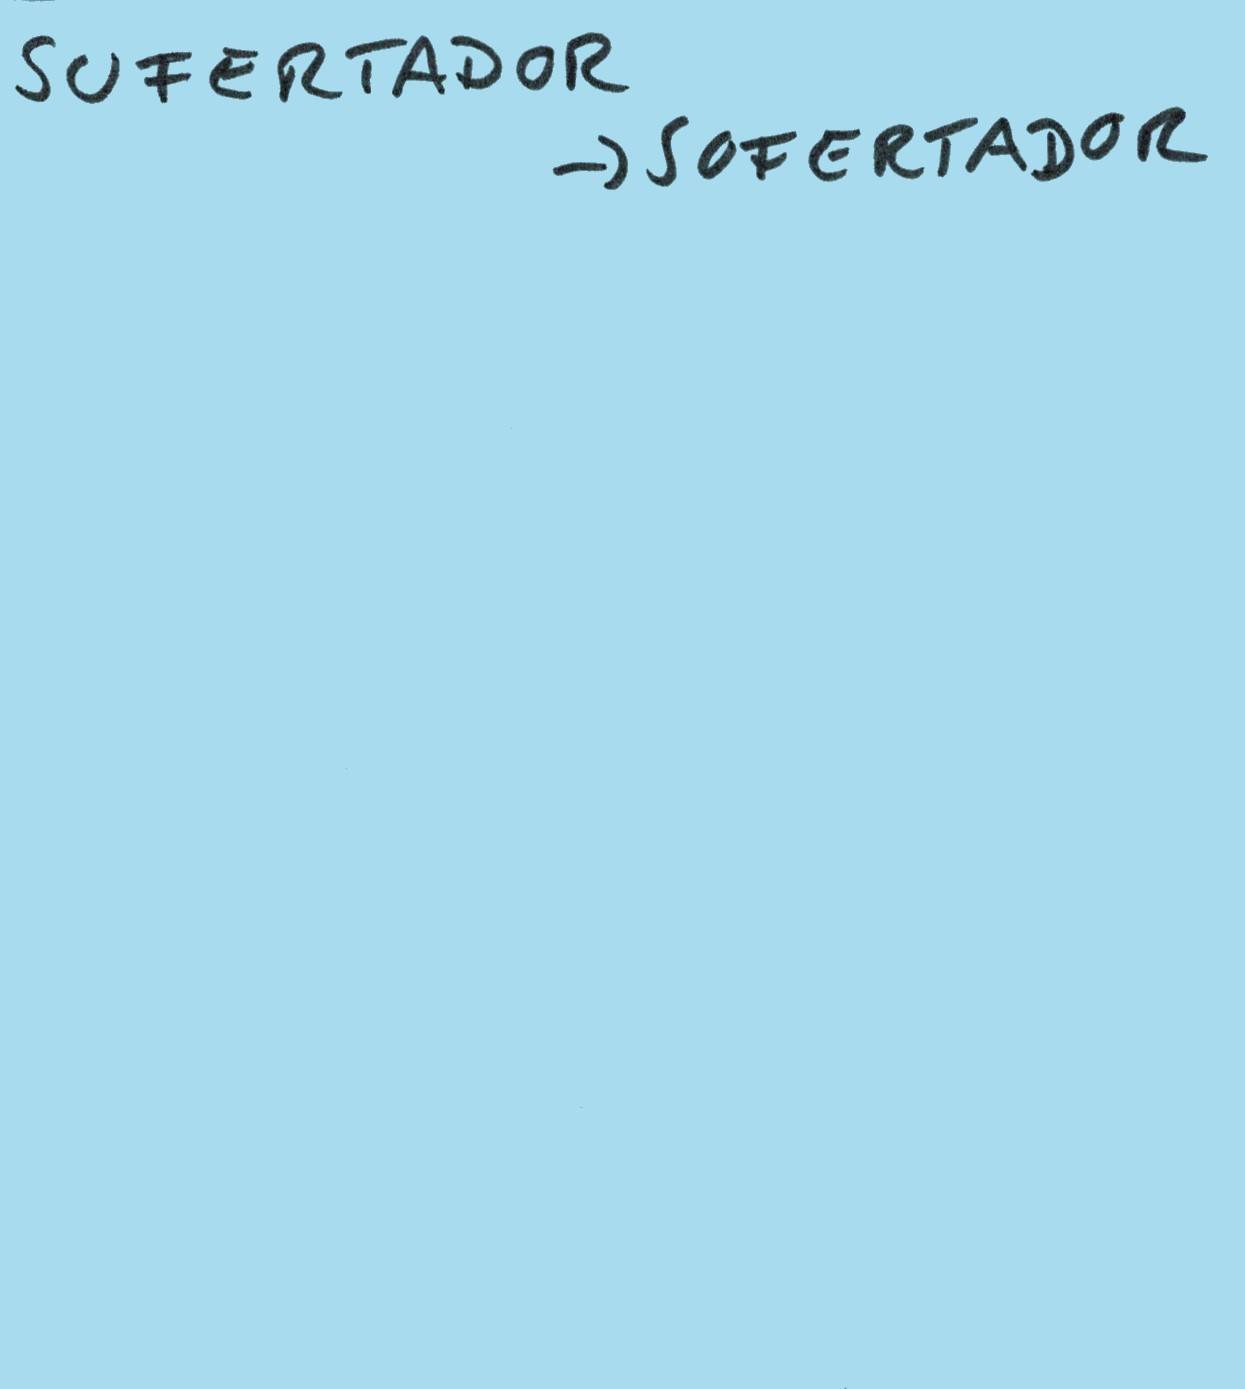 SUFERTADOR
→ SOFERTADOR